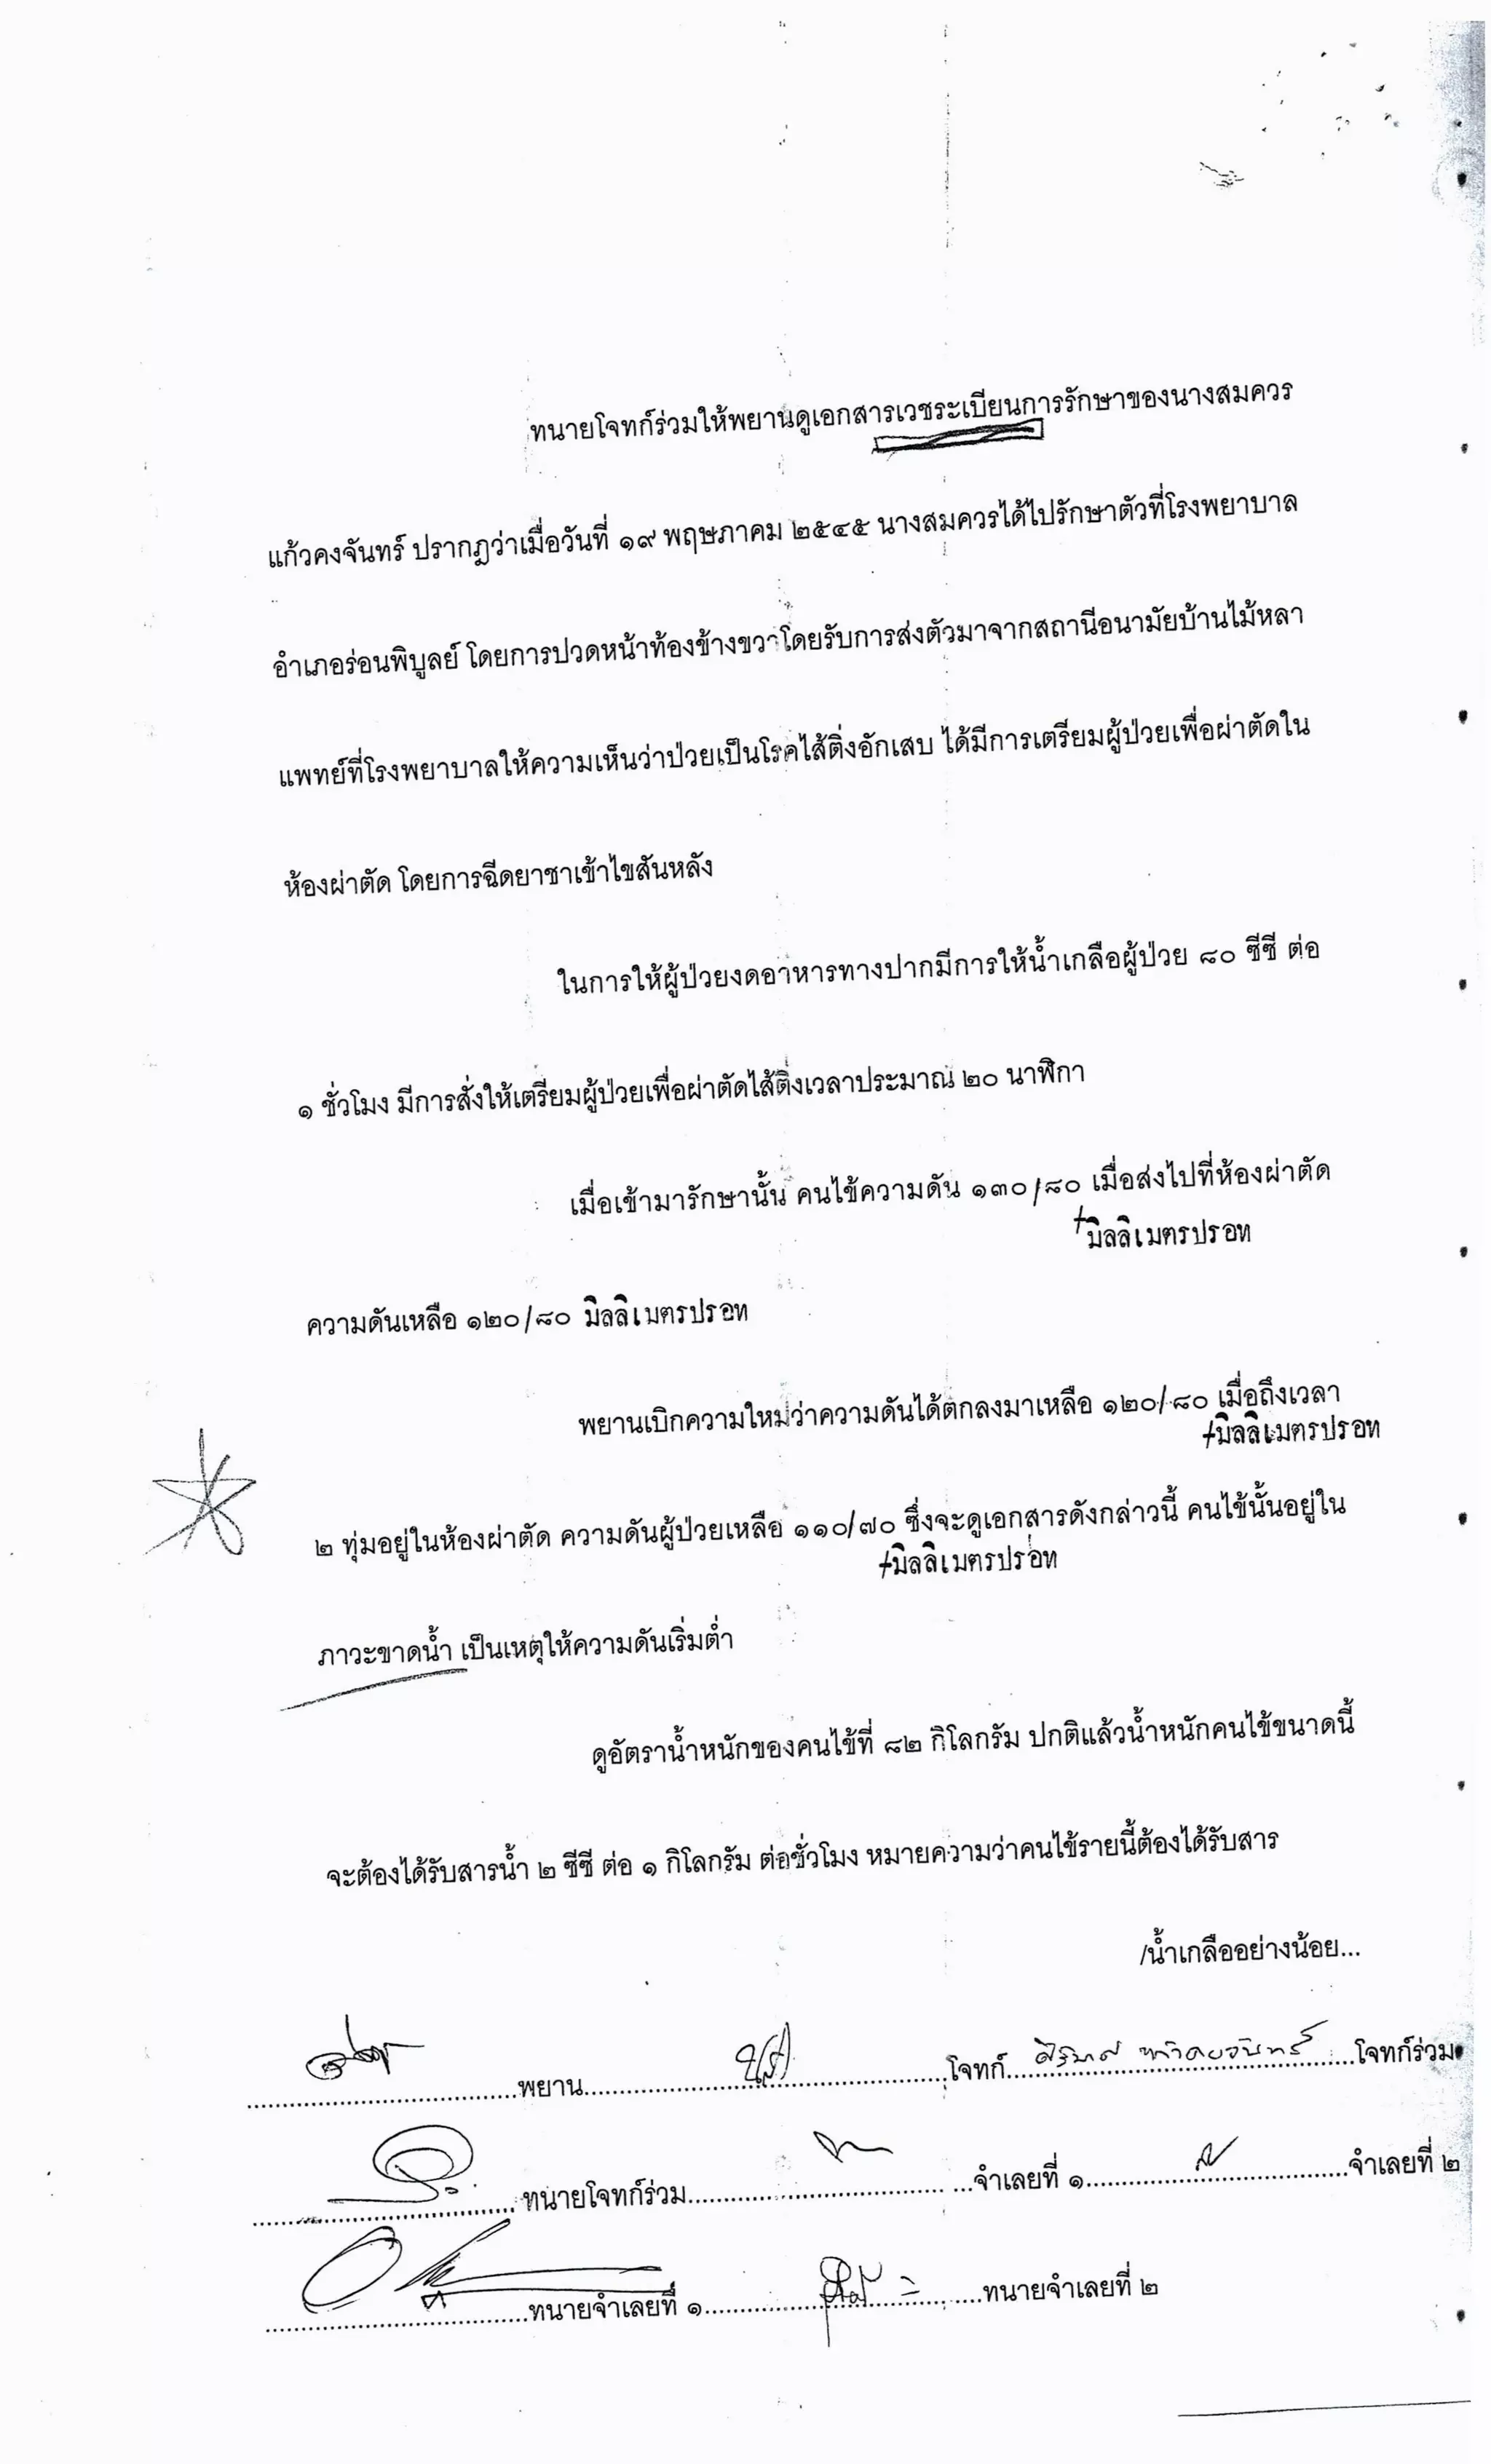 ทนายโจทก์ร่วมให้พยานดูเอกสารเวชระเบียนการรักษาของนางสมควร
แก้วคงจันทร์ ปรากฏว่าเมื่อวันที่ ๑๙ พฤษภาคม ๒๕๔๕ นางสมควรได้ไปรักษาตัวที่โรงพยาบาล
อำเภอร่อนพิบูลย์ โดยการปวดหน้าท้องข้างขวาโดยรับการส่งตัวมาจากสถานีอนามัยบ้านไม้หลา
แพทย์ที่โรงพยาบาลให้ความเห็นว่าป่วยเป็นโรคไส้ติ่งอักเสบ ได้มีการเตรียมผู้ป่วยเพื่อผ่าตัดใน
ห้องผ่าตัด โดยการฉีดยาชาเข้าไขสันหลัง
ในการให้ผู้ป่วยงดอาหารทางปากมีการให้น้ำเกลือผู้ป่วย ๘๐ ซีซี ต่อ
๑ ชั่วโมง มีการสั่งให้เตรียมผู้ป่วยเพื่อผ่าตัดไส้ติ่งเวลาประมาณ ๒๐ นาฬิกา
เมื่อเข้ามารักษานั้น คนไข้ความดัน ๑๓๐/๘๐ เมื่อส่งไปที่ห้องผ่าตัด
มิลลิเมตรปรอท
ความดันเหลือ ๑๒๐/๘๐ มิลลิเมตรปรอท
พยานเบิกความใหม่ว่าความดันได้ตกลงมาเหลือ ๑๒๐/๘๐ เมื่อถึงเวลา
มิลลิเมตรปรอท
๒ ทุ่มอยู่ในห้องผ่าตัด ความดันผู้ป่วยเหลือ ๑๑๐/๗๐ ซึ่งจะดูเอกสารดังกล่าวนี้ คนไข้นั้นอยู่ใน
มิลลิเมตรปรอท
ภาวะขาดน้ำ เป็นเหตุให้ความดันเริ่มต่ำ
ดูอัตราน้ำหนักของคนไข้ที่ ๘๒ กิโลกรัม ปกติแล้วน้ำหนักคนไข้ขนาดนี้
จะต้องได้รับสารน้ำ ๒ ซีซี ต่อ ๑ กิโลกรัม ต่อชั่วโมง หมายความว่าคนไข้รายนี้ต้องได้รับสาร
/น้ำเกลืออย่างน้อย...
พยาน โจทก์ โจทก์ร่วม
ทนายโจทก์ร่วม จำเลยที่ ๑ จำเลยที่ ๒
ทนายจำเลยที่ ๑ ทนายจำเลยที่ ๒